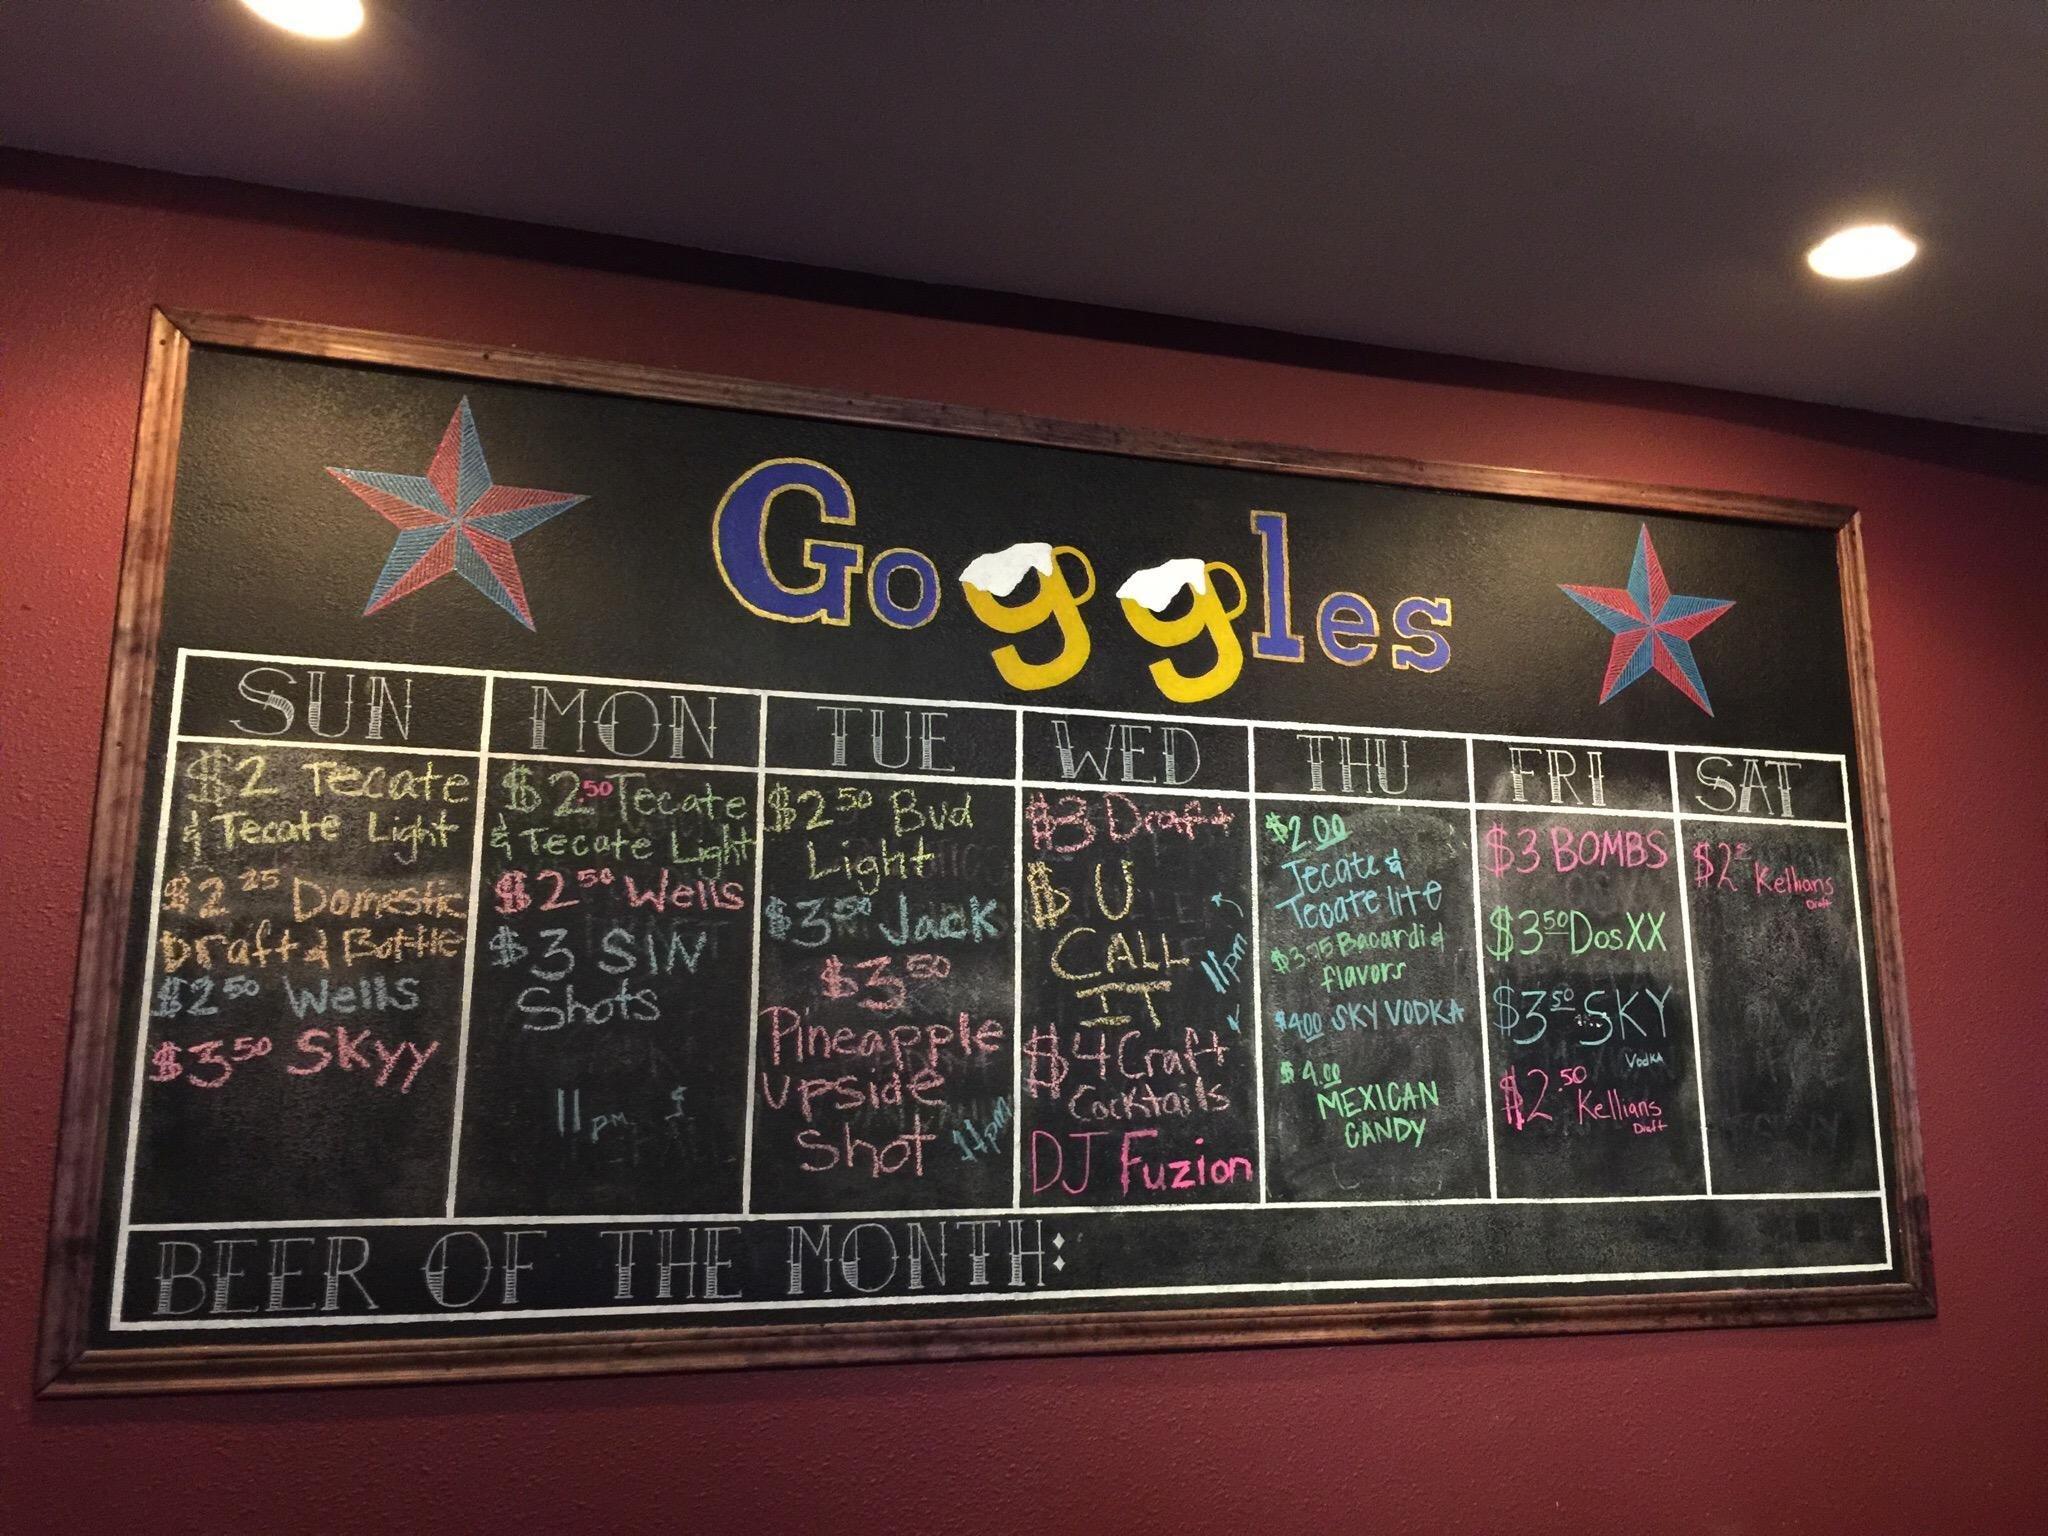 Goggles
SUN
$2 Tecate
& Tecate Light
$2.25 Domestic
Draft & Bottle
$2.50 Wells
$3.50 SKyy
MON
$2.50 Tecate
& Tecate Light
$2.50 Wells
$3 SIN
Shots
11pm
TUE
$2.50 Bud
Light
$3.50 Jack
$3.50
Pineapple
Upside
Shot
11pm
WED
$3 Draft
$ U
CALL
IT
11pm
$4 Craft
Cocktails
DJ Fuzion
THU
$2.00
Tecate &
Tecate lite
$3.75 Bacardi &
flavors
$4.00 SKY VODKA
$4.00
MEXICAN
CANDY
FRI
$3 BOMBS
$3.50 Dos XX
$3.50 SKY
Vodka
$2.50 Kellians
Draft
SAT
Kellians
Draft
BEER OF THE MONTH: